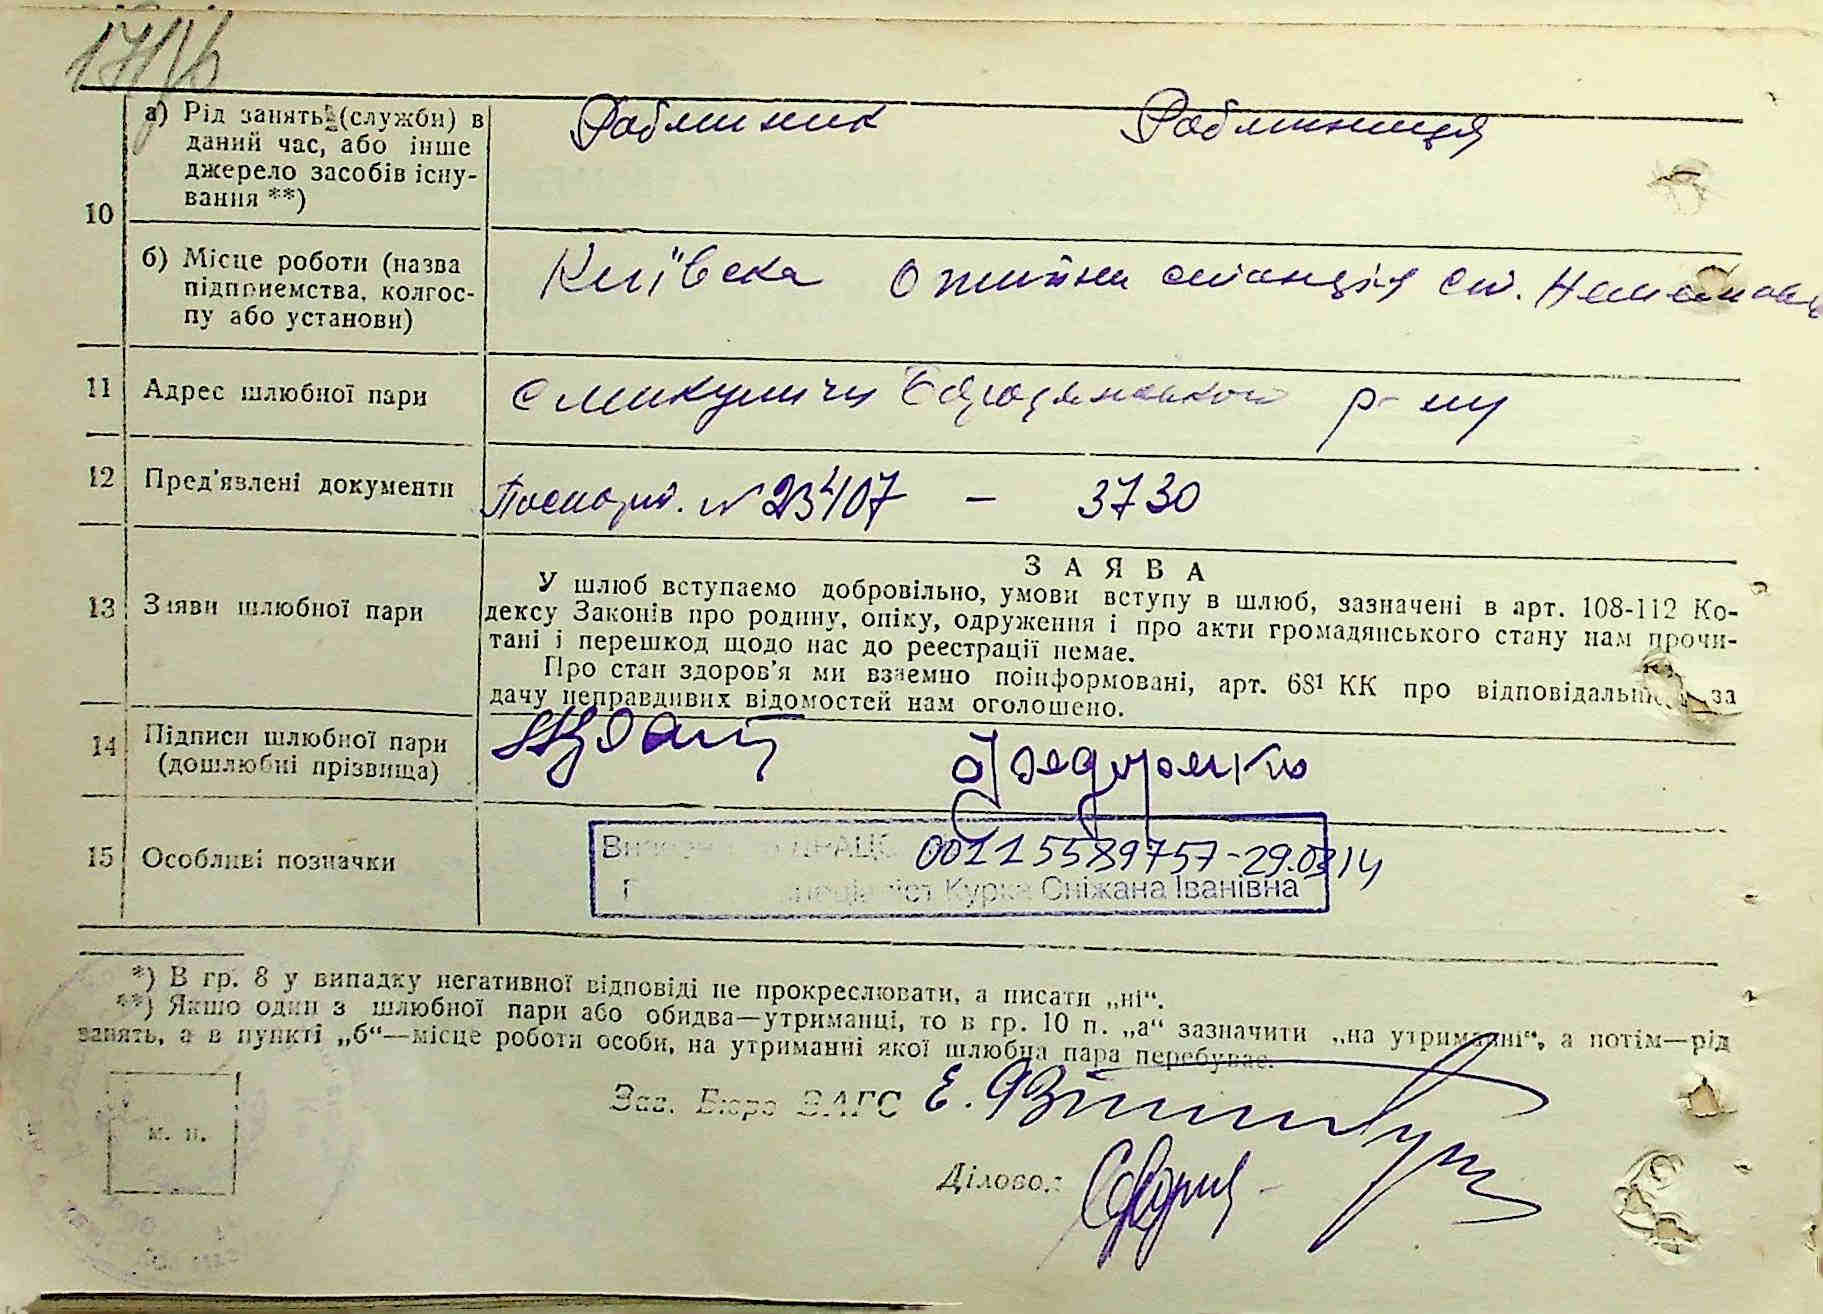 10
а) Рід занять (служби) в
даний час, або інше
джерело засобів існу-
вання **)
Робітник Робітниця
б) Місце роботи (назва
підприємства, колгос-
пу або установи)
Київська станція ст.
11 Адрес шлюбної пари
с Микуличи Бородянського р-ну
12 Пред'явлені документи
Паспорт. № 23407 — 3730
13 Заяви шлюбної пари
ЗАЯВА
У шлюб вступаємо добровільно, умови вступу в шлюб, зазначені в арт. 108-112 Ко-
дексу Законів про родину, опіку, одруження і про акти громадянського стану нам прочи-
тані і перешкод щодо нас до реестрації немає.
Про стан здоров'я ми взаємно поінформовані, арт. 68¹ КК про за
дачу неправдивих відомостей нам оголошено.
14 Підписи шлюбної пари
(дошлюбні прізвища)
15 Особливі позначки
00115589757-29.03.14
Курка Сніжана Іванівна
*) В гр. 8 у випадку негативної відповіді не прокреслювати, а писати „ні“.
**) Якщо один з шлюбної пари або обидва—утриманці, то в гр. 10 п. „а“ зазначити „на утриманні“, а потім—рід
занять, а в пункті „б“—місце роботи особи, на утриманні якої шлюбна пара перебуває.
Зав. Бюро ЗАГС
м. п.
Діловод: